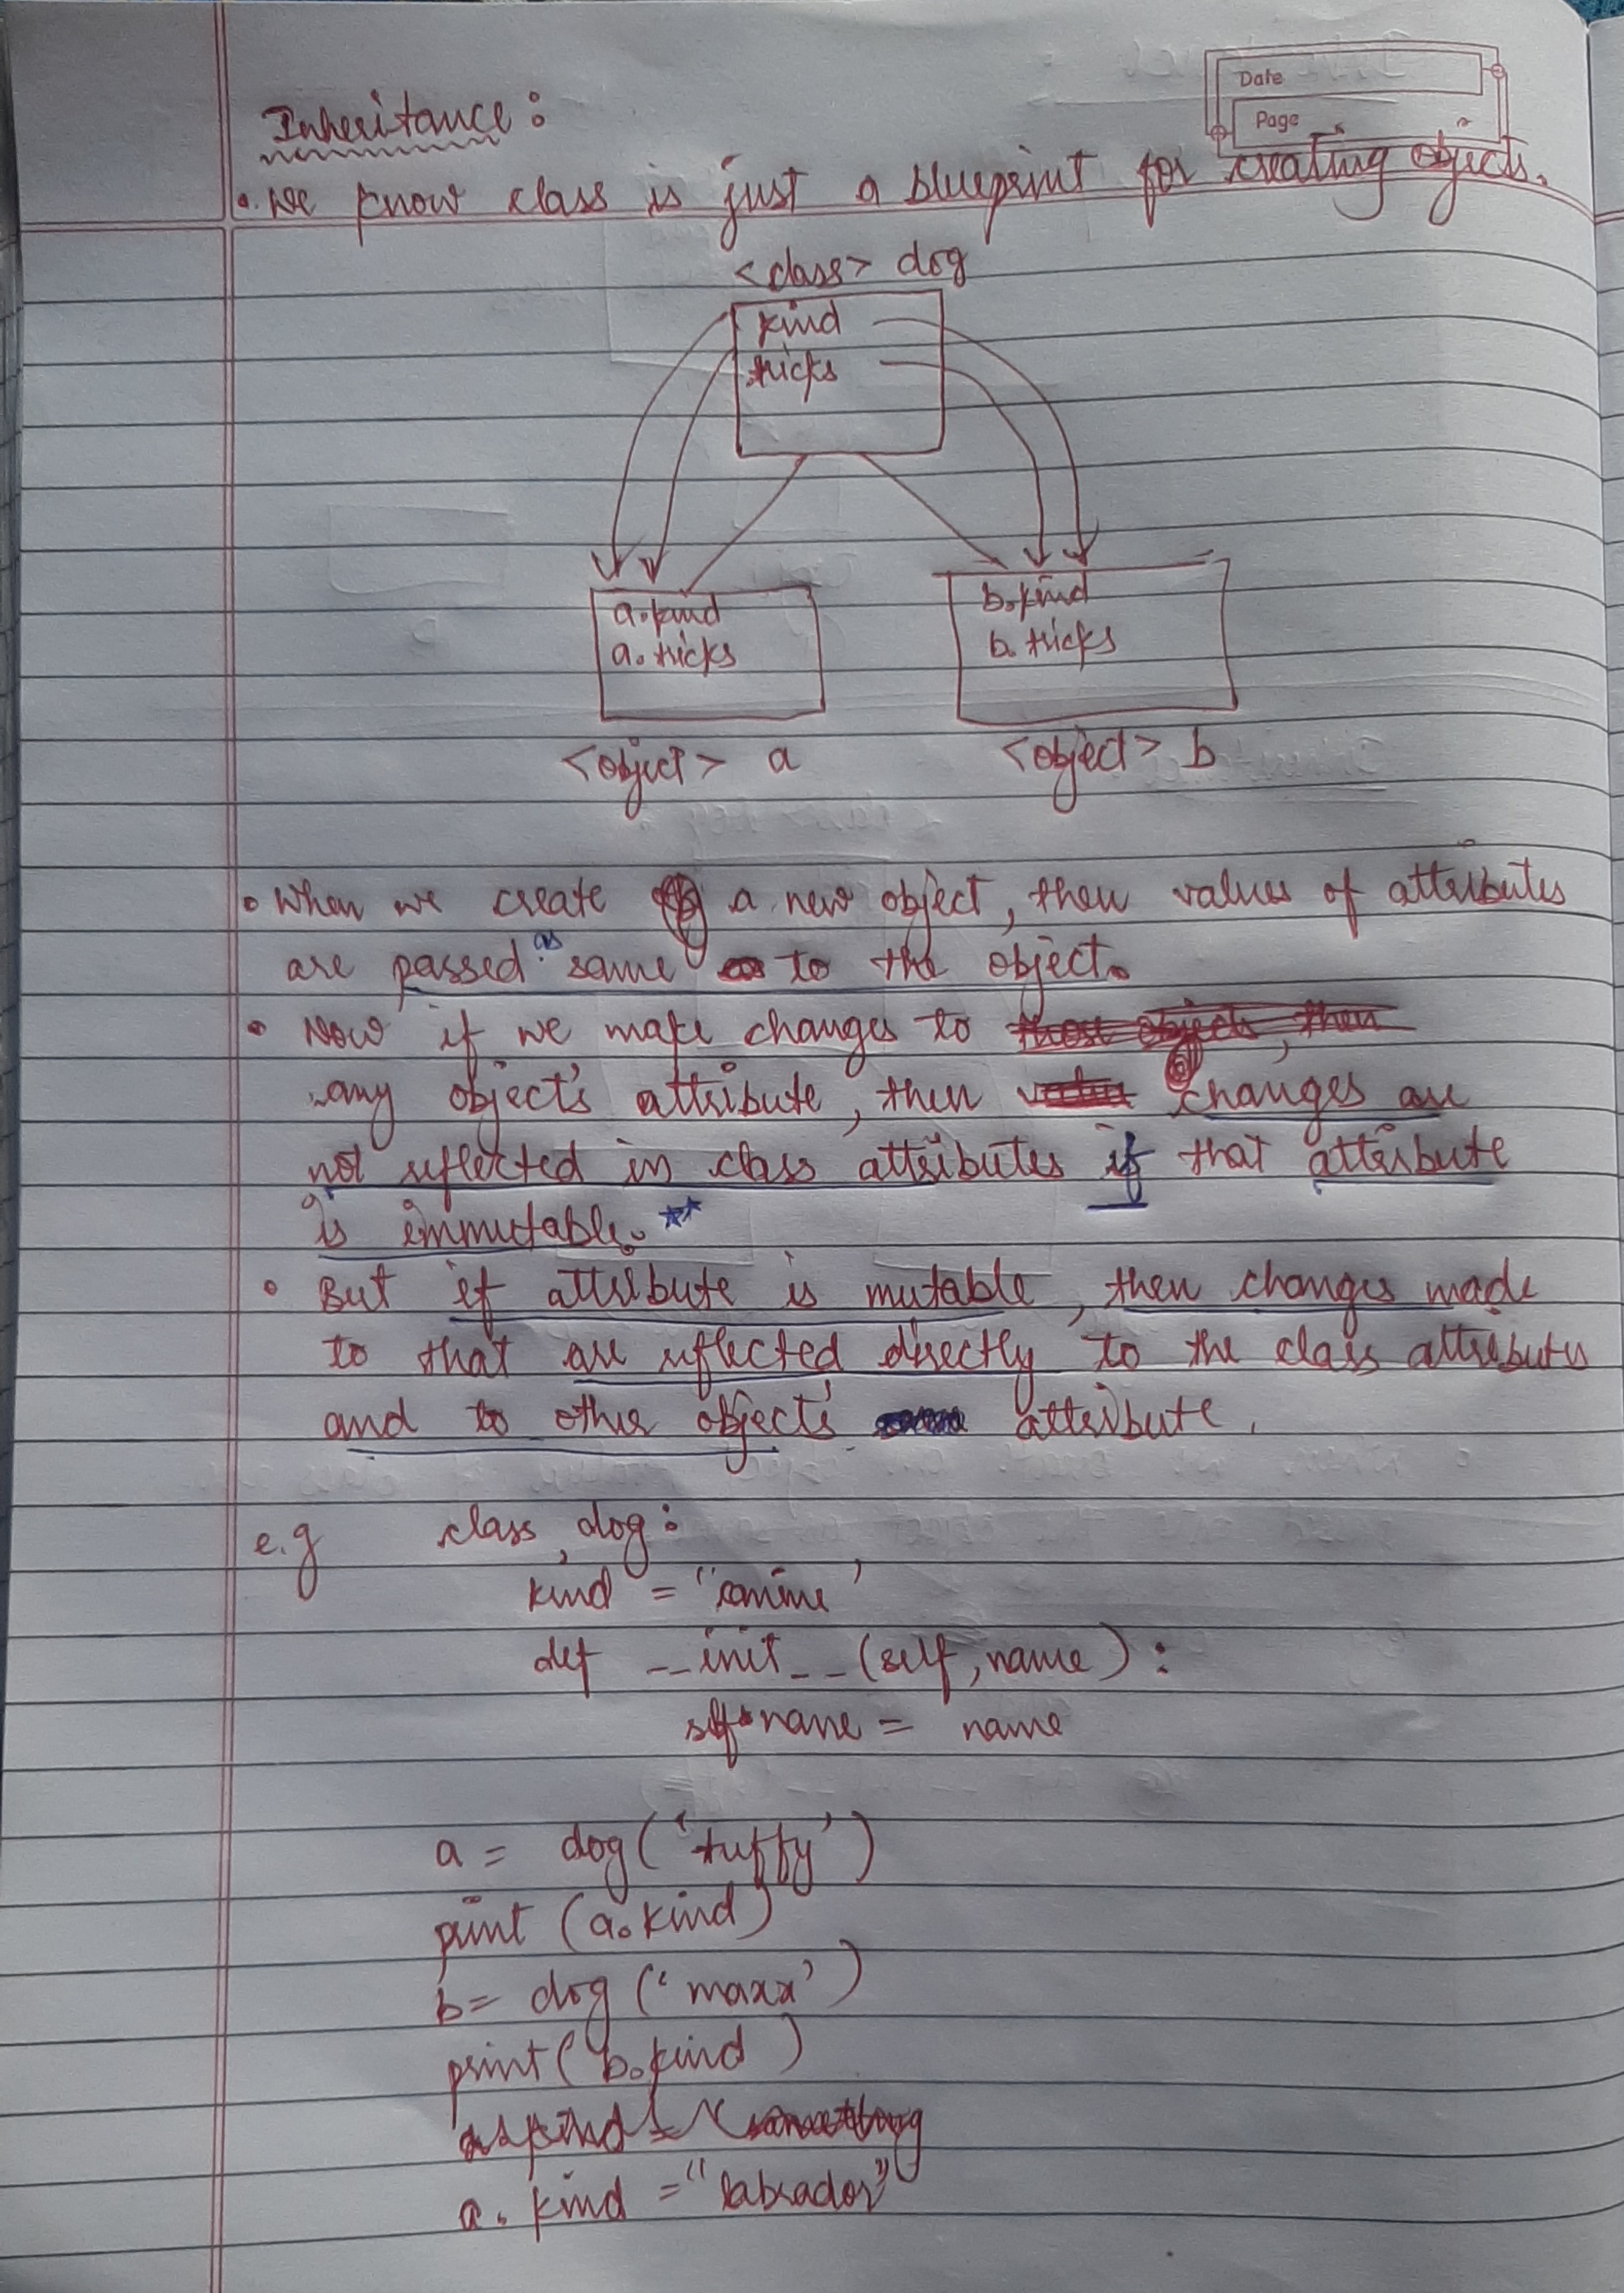 Date
Page
Inheritance :
• We know class is just a blueprint for creating objects.
<class> dog
kind
tricks
a.kind
a.tricks
b.kind
b.tricks
<object> a
<object> b
• When we create a new object, then values of attributes
are passed as same to the object.
• Now if we make changes to
any object's attribute, then changes are
not reflected in class attributes if that attribute
is immutable. **
• But if attribute is mutable, then changes made
to that are reflected directly to the class attributes
and to other object's attribute.
e.g class dog:
kind = "canine'
def __init__(self, name):
self.name = name
a = dog('tuffy')
print (a.kind)
b = dog('maxx')
print(b.kind)
a.kind = "labrador"